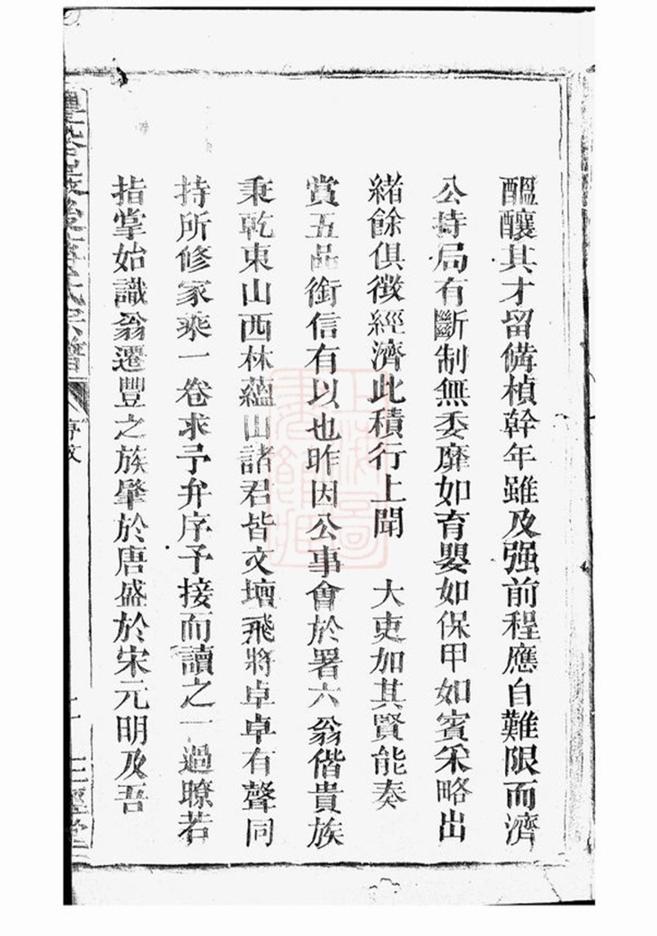 醞釀其才留備楨幹年雖及强前程應自難限而濟
公持局有斷制無委靡如育嬰如保甲如賓采略出
緒餘俱徵經濟此積行上聞　大吏加其賢能奏
賞五品銜信有以也昨因公事會於署六翁偕貴族
秉乾東山西林蘊山諸君皆文壇飛將卓卓有聲同
持所修家乘一卷求予弁序予接而讀之一過瞭若
指掌始識翁遷豐之族肇於唐盛於宋元明及吾
氏宗譜
三經堂